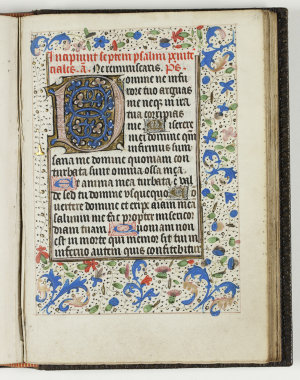 Incipiunt septem psalmi penite
tiales. a. Ne reminiscaris. Ps.
Domine ne in fu
rore tuo arguas
me neqz in ira
tua corripias
me Miserere
mei domine qm
infirmus sum
sana me domine quoniam con
turbata sunt omnia ossa mea.
Et anima mea turbata e val
de sed tu domine usquequo Co
vertere domine et eripe aiam mea
saluum me fac propter misericor
diam tuam Quoniam non
est in morte qui memor sit tui in
inferno autem quis confitebitur